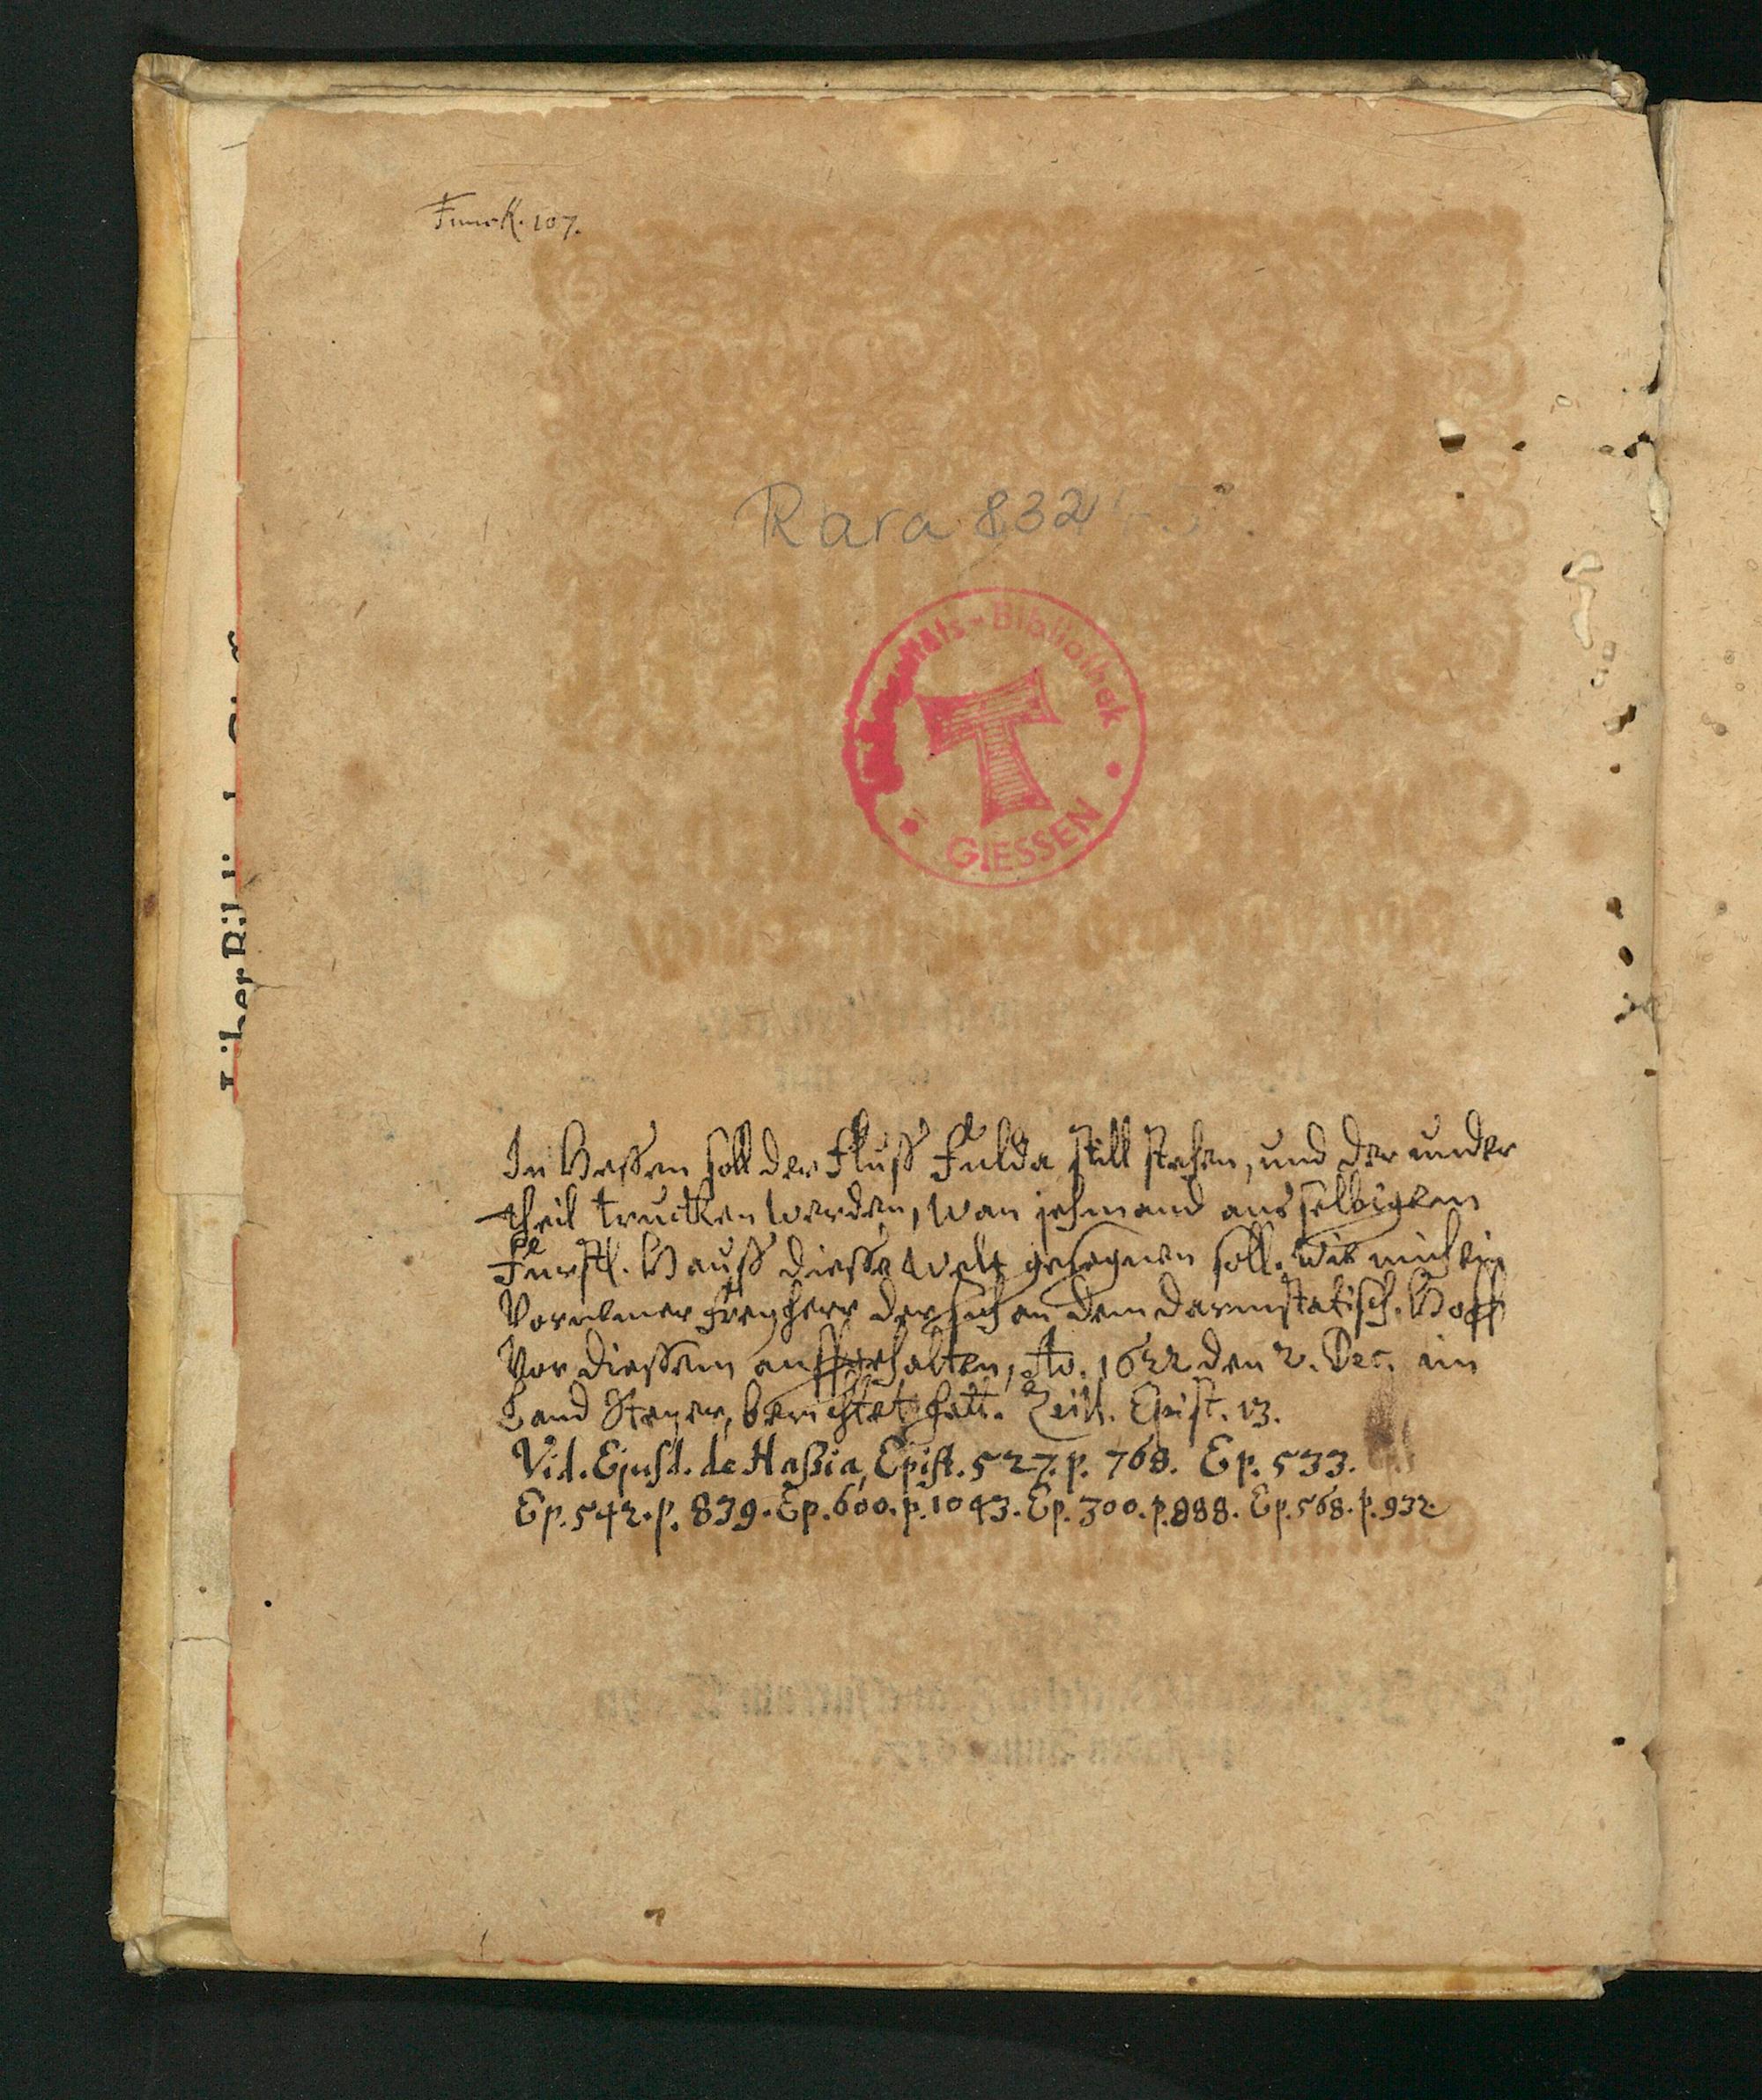 Funck. 107.
Rara 832
Universitäts-Bibliothek
GIESSEN
In Hessen soll der Fluß Fulda still stehen, und der under
theil trucken werden, wan jehmand aus selbigem
Fürstl. Hauß diesse Welt gesegnen soll. wie mich ein
Vornemer Freyherr der sich an dem Darmstatisch. Hoff
Vor diessem auffgehalten, Ao. 1622 den 2. Dec. im
Land Steyer, berichtet hatt. Zeill. Epist. 13.
Vid. Ejusd. de Haßia, Epist. 527. p. 768. Ep. 533.
Ep. 542. p. 839. Ep. 600. p. 1043. Ep. 300. p. 888. Ep. 568. p. 932